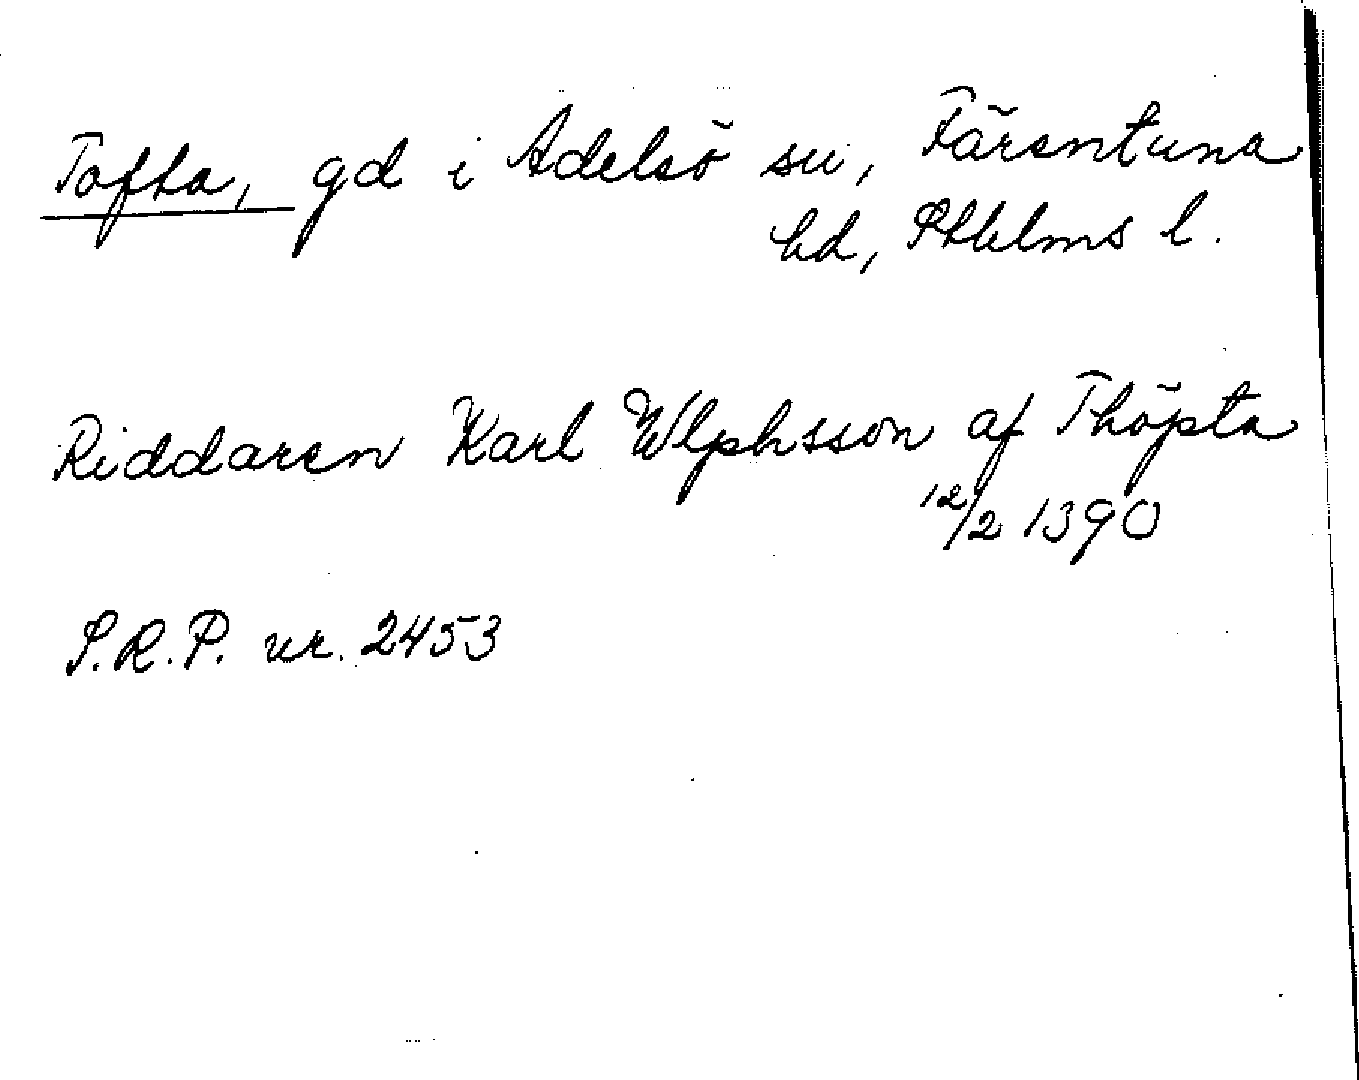 Tofta, gd i Adelsö sn, Färentuna
hd, Sthlms l.
Riddaren Karl Wlphsson af Thöpta
12/2 1390
S.R.P. nr. 2453